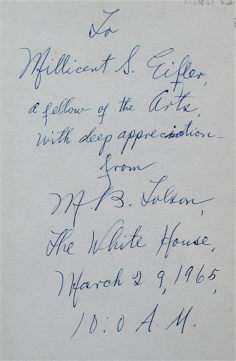 To
Millicent S. Eifler,
a fellow of the Arts,
with deep appreciation
from
M. B. Tolson,
The White House,
March 29, 1965,
10:0 A.M.